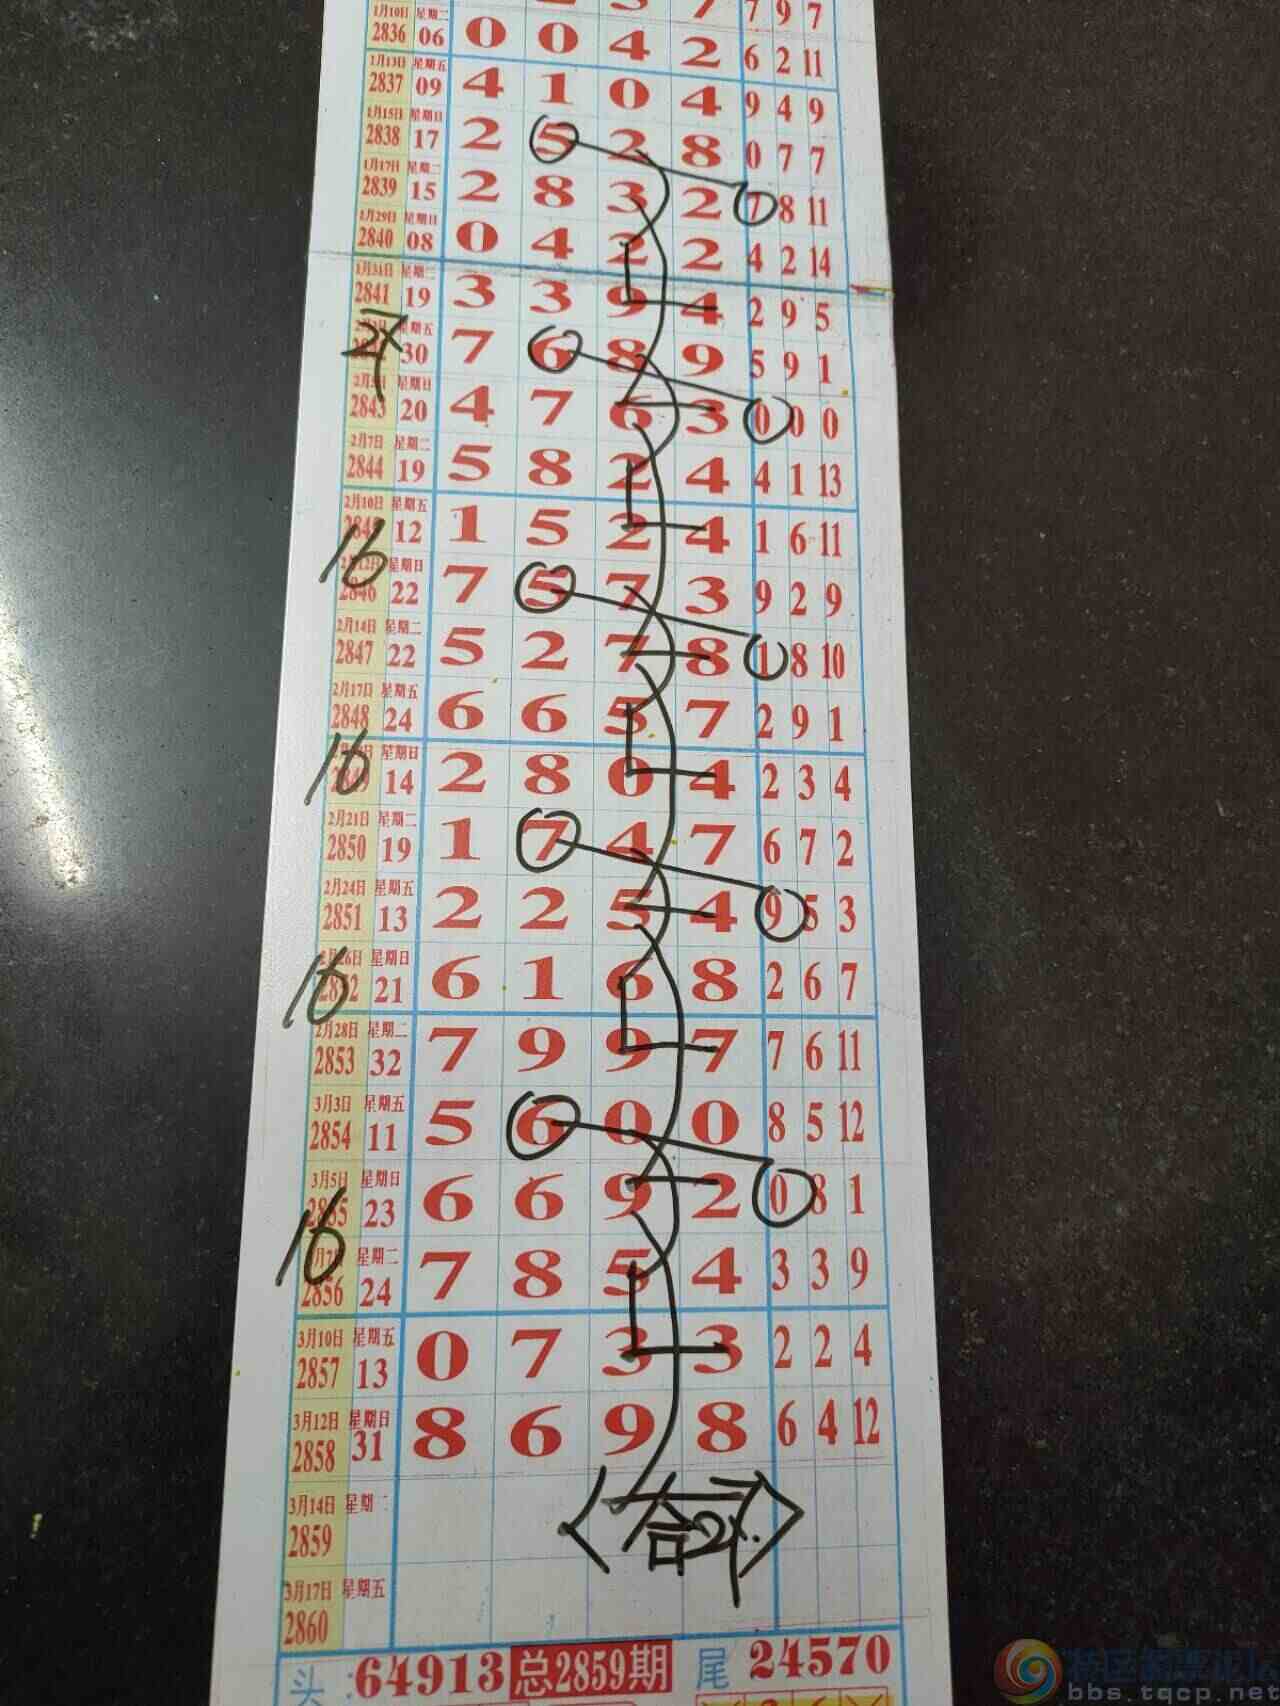 7 7 9 7
1月10日 星期二 2836 06 0 0 4 2 6 2 11
1月13日 星期五 2837 09 4 1 0 4 9 4 9
1月15日 星期日 2838 17 2 5 2 8 0 7 7
1月17日 星期二 2839 15 2 8 3 2 7 8 11
1月29日 星期日 2840 08 0 4 2 2 4 2 14
1月31日 星期二 2841 19 3 3 9 4 2 9 5
星期五 30 7 6 8 9 5 9 1
星期日 2843 20 4 7 6 3 0 0 0
2月7日 星期二 2844 19 5 8 2 4 4 1 13
2月10日 星期五 12 1 5 2 4 1 6 11
16
2月12日 星期日 2846 22 7 5 7 3 9 2 9
2月14日 星期二 2847 22 5 2 7 8 1 8 10
2月17日 星期五 2848 24 6 6 5 7 2 9 1
16
星期日 14 2 8 0 4 2 3 4
2月21日 星期二 2850 19 1 7 4 7 6 7 2
2月24日 星期五 2851 13 2 2 5 4 9 5 3
16
2月26日 星期日 2852 21 6 1 6 8 2 6 7
2月28日 星期二 2853 32 7 9 9 7 7 6 11
3月3日 星期五 2854 11 5 6 0 0 8 5 12
3月5日 星期日 2855 23 6 6 9 2 0 8 1
16
星期二 2856 24 7 8 5 4 3 3 9
3月10日 星期五 2857 13 0 7 3 3 2 2 4
3月12日 星期日 2858 31 8 6 9 8 6 4 12
3月14日 星期二 2859
合
3月17日 星期五 2860
头:64913 总2859期 尾 24570
bbs.tqcp.net